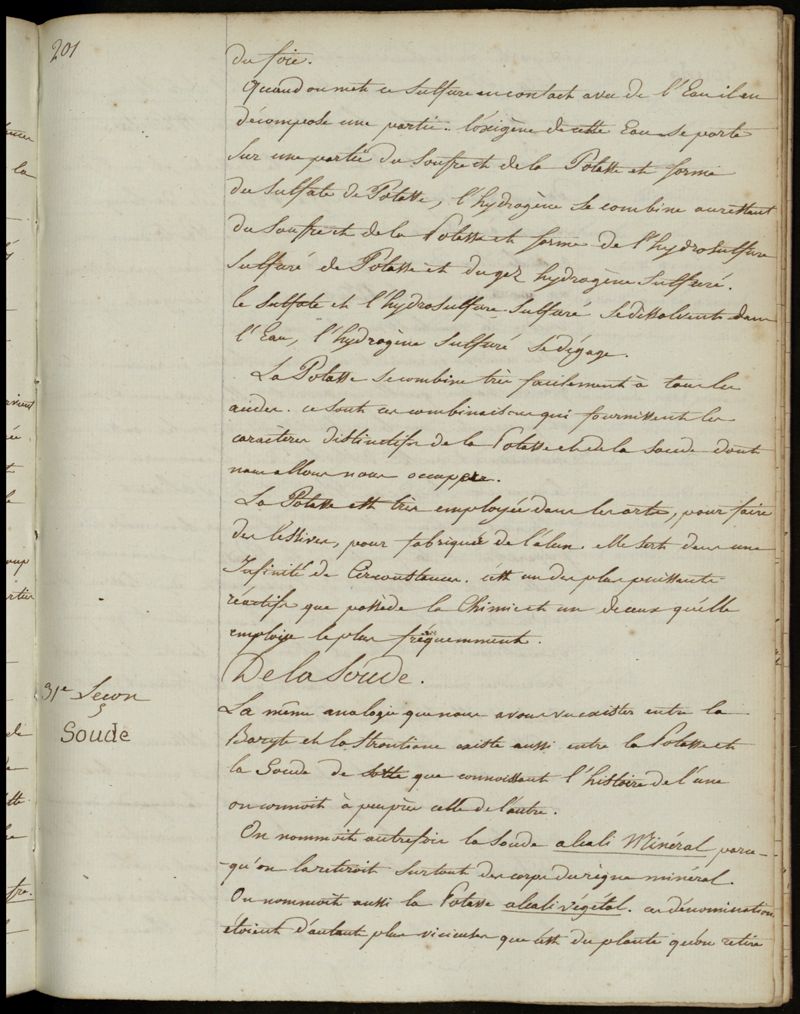 201
du foie.
Quand on met ce sulfure en contact avec de l'Eau il en
décompose une partie. l'oxigène de cette Eau se porte
sur une partie du Soufre et de la Potasse et forme
du sulfate de Potasse, l'hydrogène se combine au restant
du Soufre et de la Potasse et forme de l'hydrosulfure
sulfuré de Potasse et du gaz hydrogène sulfuré.
le sulfate et l'hydrosulfure sulfuré se dissolvent dans
l'Eau, l'hydrogène sulfuré se dégage.
La Potasse se combine très facilement à tous les
acides. ce sont ces combinaisons qui fournissent les
caractères distinctifs de la Potasse et de la soude dont
nous allons nous occuper.
La Potasse est très employée dans les arts, pour faire
des lessives, pour fabriquer de l'alun. elle sert dans une
Infinité de Circonstances. c'est un des plus puissants
réactifs que possède la Chimie et un de ceux qu'elle
emploie le plus fréquemment.
De la Soude.
31e Leçon
Soude
La même analogie que nous avons vu exister entre la
Baryte et la Strontiane existe aussi entre la Potasse et
la Soude de sorte que connoissant l'histoire de l'une
on connoit à peu près celle de l'autre.
On nommoit autrefois la soude alcali Minéral parce-
-qu'on la retiroit surtout des corps du règne minéral.
On nommoit aussi la Potasse alcali végétal. ces dénominations
étoient d'autant plus vicieuses que c'est des plantes qu'on retire